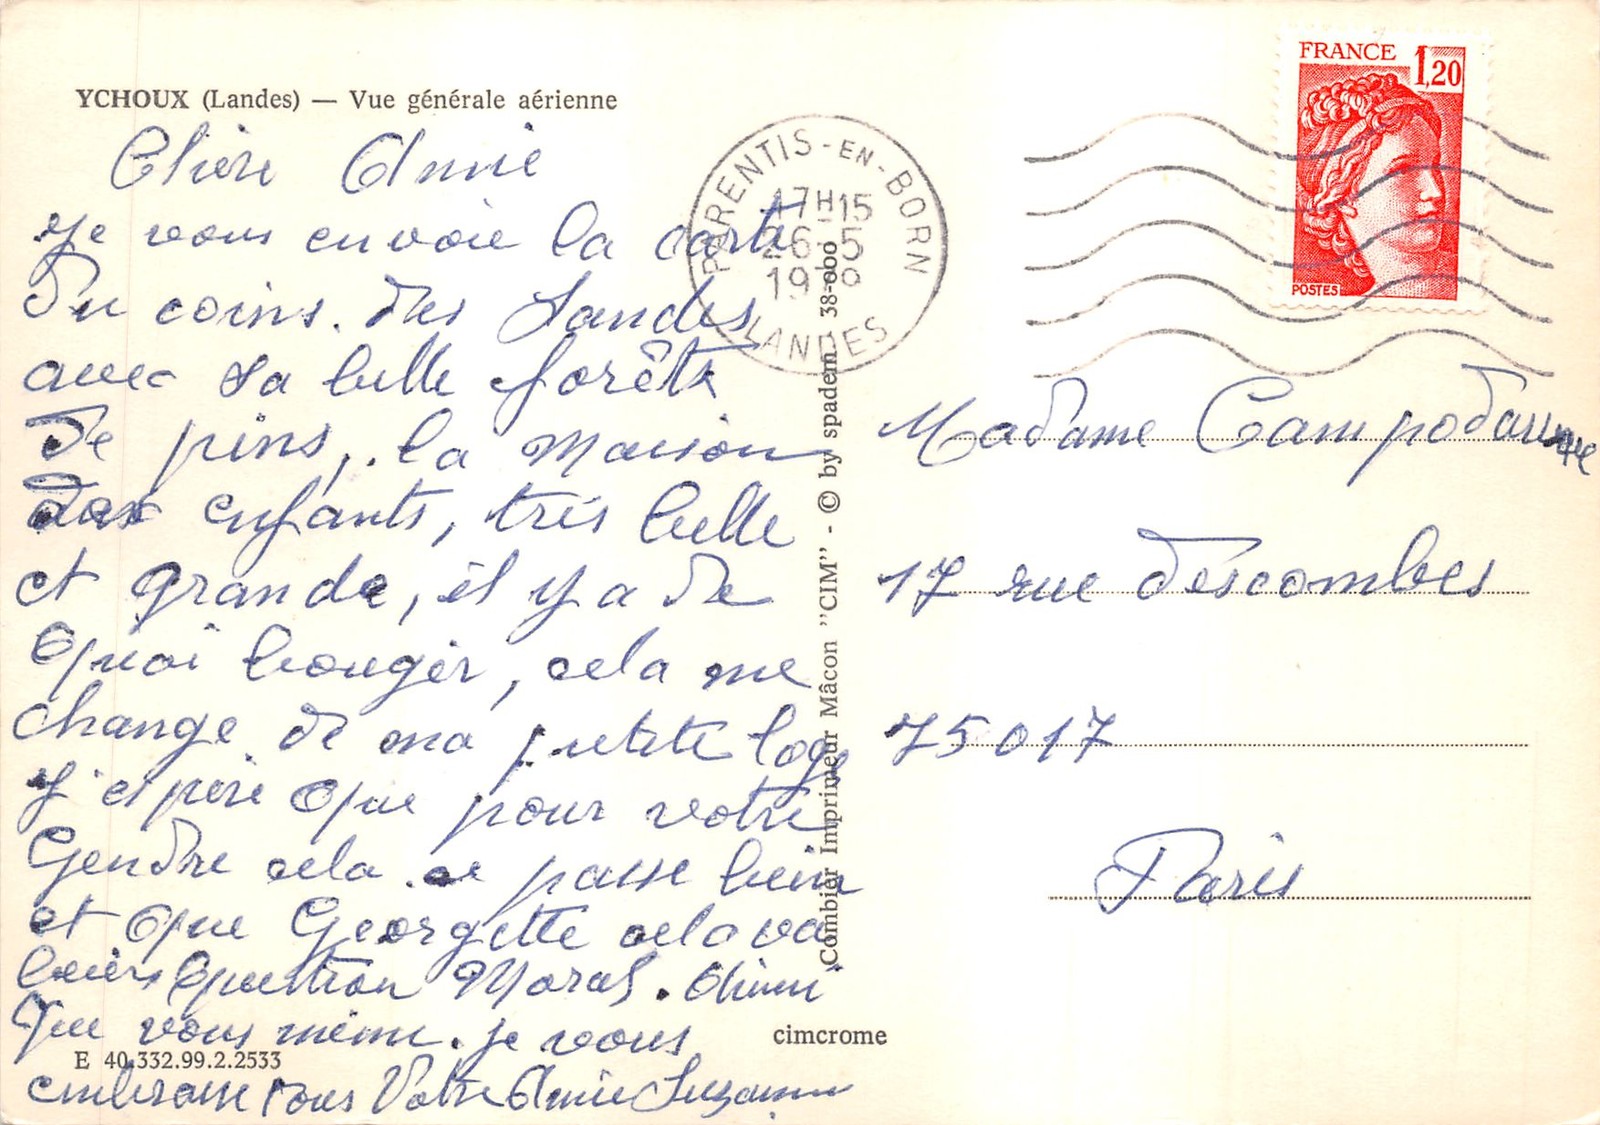 YCHOUX (Landes) — Vue générale aérienne
Chère Amie
Je vous envoie la carte
Du coins. des Landes
avec sa belle forêts
de pins, la maison
des enfants, très belle
et grande, il y a de
quoi bouger, cela me
change de ma petite loge
J'espère que pour votre
Gendre cela se passe bien
et que Georgette cela va
biens question Moral. Ainsi
que vous même. je vous
embrasse tous Votre Amie Suzanne
PARENTIS-EN-BORN
17H15
26-5
19
LANDES
FRANCE 1,20
POSTES
Madame Campodarme
17 rue descombes
75017
Paris
Combier Imprimeur Mâcon "CIM" - © by spadem 38-000
cimcrome
E 40.332.99.2.2533